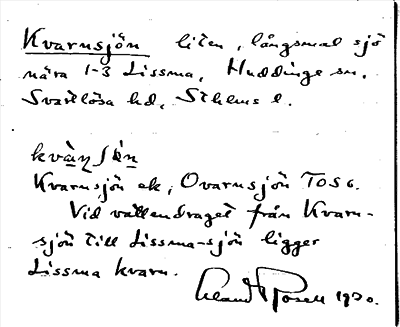 Kvarnsjön liten, långsmal sjö
nära 1-3 Lissma, Huddinge sn.
Svartlösa hd, Sthlms l.
kvà̀ṇʃö̀n
Kvarnsjön ek, Qvarnsjön TOS 6.
Vid vattendraget från Kvarn-
sjön till Lissma-sjön ligger
Lissma kvarn.
Rosell 1930.